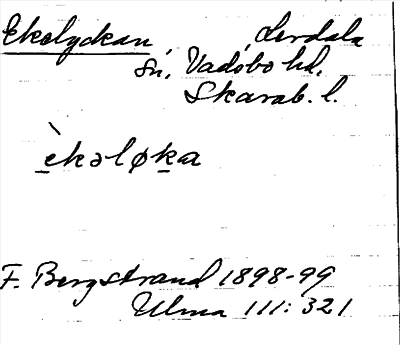 Ekelyckan, Lerdala
sn, Vadsbo hd,
Skarab. l.
è̱kəløḵa
F. Bergstrand 1898-99
Ulma 111: 321